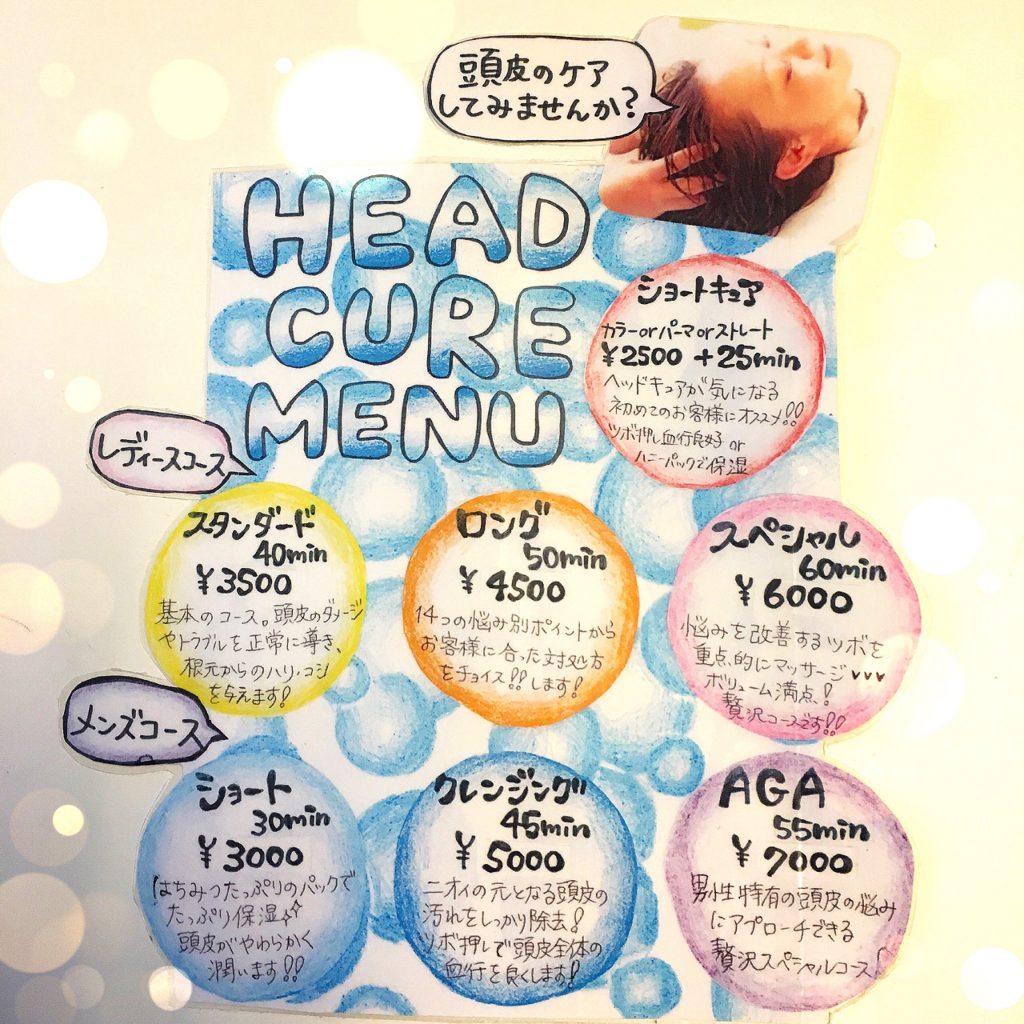 頭皮のケア
してみませんか？
HEAD
CURE
MENU
ショートキュア
カラーorパーマorストレート
¥2500 +25min
ヘッドキュアが気になる
初めてのお客様にオススメ!!
ツボ押し血行良好 or
ハニーパックで保湿
レディースコース
スタンダード
40min
¥3500
基本のコース。頭皮のダメージ
やトラブルを正常に導き、
根元からのハリ・コシ
を与えます!
ロング
50min
¥4500
14つの悩み別ポイントから
お客様に合った対処方
をチョイス!!します!
スペシャル
60min
¥6000
悩みを改善するツボを
重点的にマッサージ♥♥♥
ボリューム満点!
贅沢コースです!!
メンズコース
ショート
30min
¥3000
はちみつたっぷりのパックで
たっぷり保湿
頭皮がやわらかく
潤います!!
クレンジング
45min
¥5000
ニオイの元となる頭皮の
汚れをしっかり除去!
ツボ押しで頭皮全体の
血行を良くします!
AGA
55min
¥7000
男性特有の頭皮の悩み
にアプローチできる
贅沢スペシャルコース!